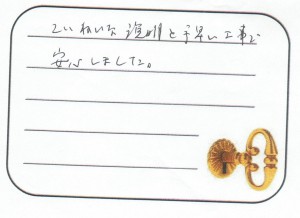 ていねいな説明と手早い工事で
安心しました。